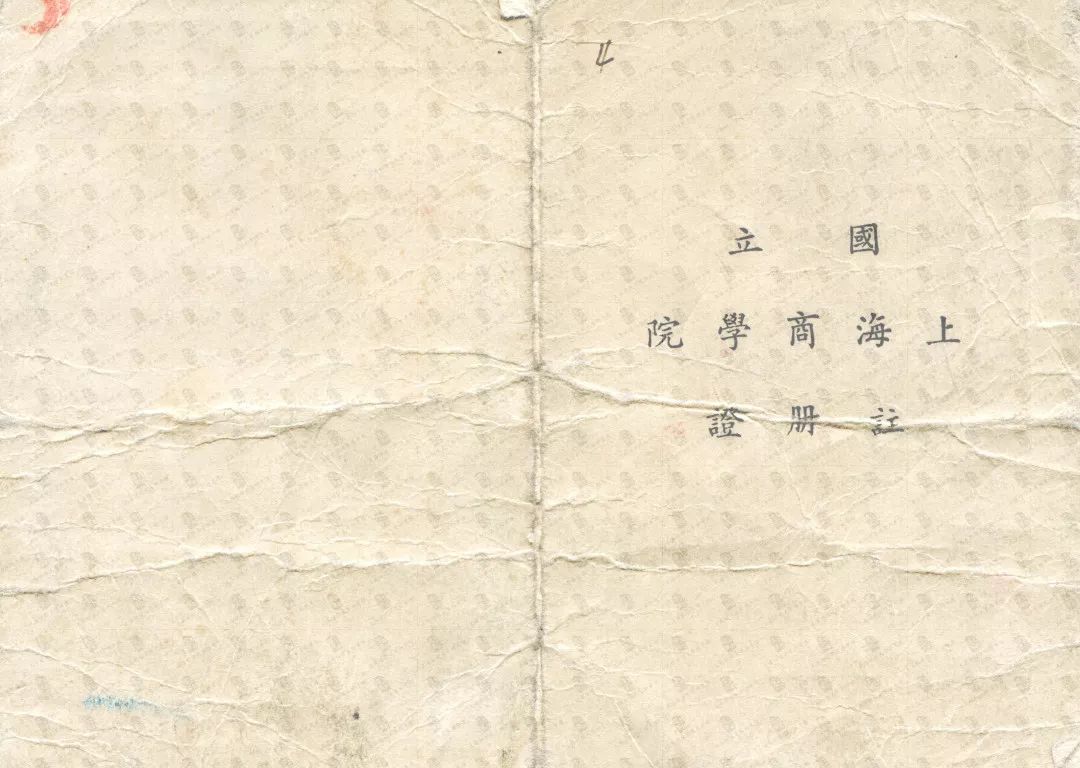 國立
上海商學院
註册證